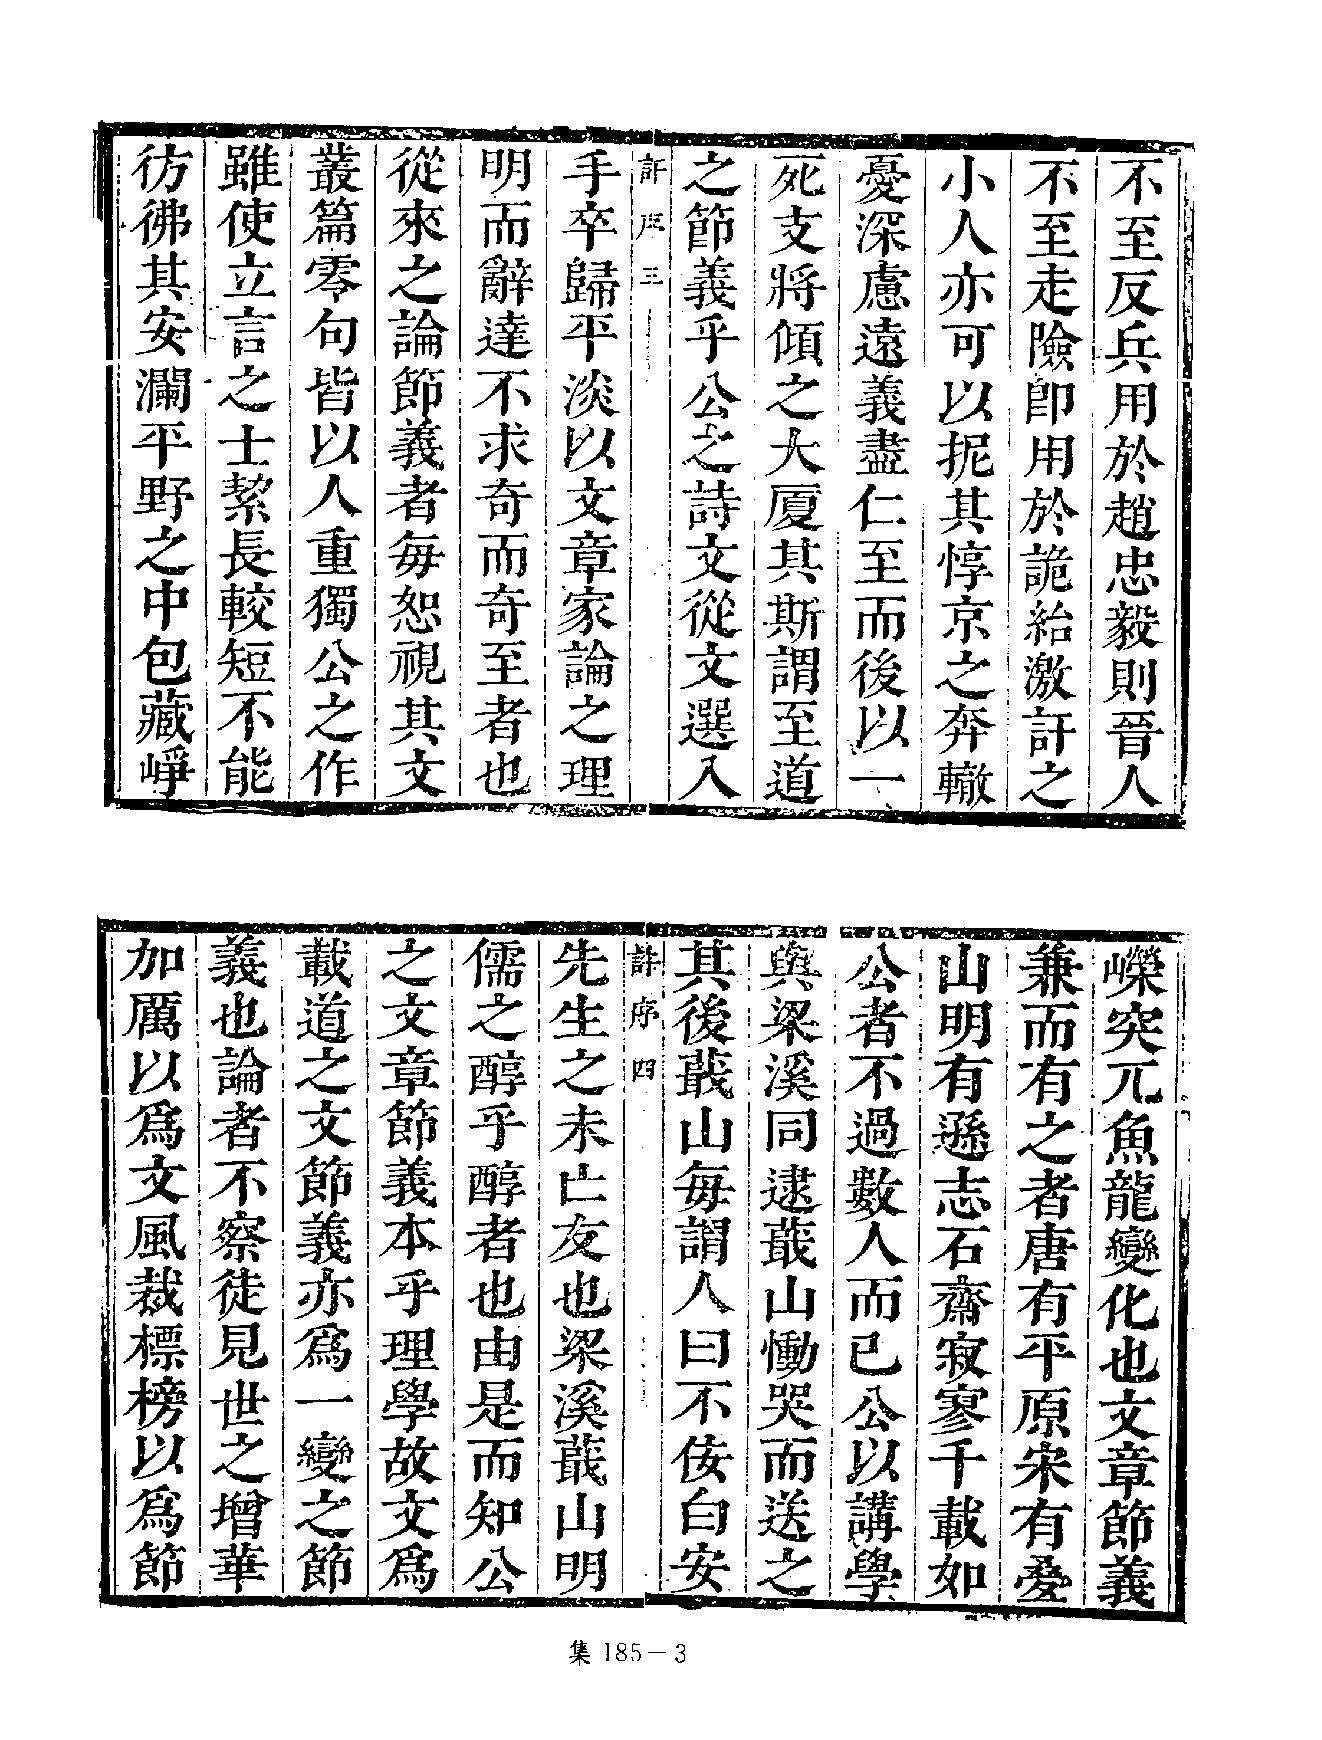 不至反兵用於趙忠毅則晉人
不至走險卽用於詭紿激訐之
小人亦可以抳其惇京之奔轍
憂深慮遠義盡仁至而後以一
死支將傾之大厦其斯謂至道
之節義乎公之詩文從文選入
許序 三
手卒歸平淡以文章家論之理
明而辭達不求奇而奇至者也
從來之論節義者每恕視其文
叢篇零句皆以人重獨公之作
雖使立言之士絜長較短不能
彷彿其安瀾平野之中包藏崢
嶸突兀魚龍變化也文章節義
兼而有之者唐有平原宋有疊
山明有遜志石齋寂寥千載如
公者不過數人而已公以講學
與梁溪同逮蕺山慟哭而送之
其後蕺山每謂人曰不佞白安
許序 四
先生之未亡友也梁溪蕺山明
儒之醇乎醇者也由是而知公
之文章節義本乎理學故文爲
載道之文節義亦爲一變之節
義也論者不察徒見世之增華
加厲以爲文風裁標榜以爲節
集 185－3